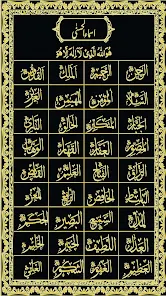 اسماء الحسنى
هو الله الذي لا اله الا هو
الرحمن الرحيم الملك القدوس
السلام المؤمن المهيمن العزيز
الجبار المتكبر الخالق البارئ
المصور الغفار القهار الوهاب
الرزاق الفتاح العليم القابض
الباسط الخافض الرافع المعز
المذل السميع البصير الحكم
العدل اللطيف الخبير الحليم
العظيم الغفور الشكور العلي